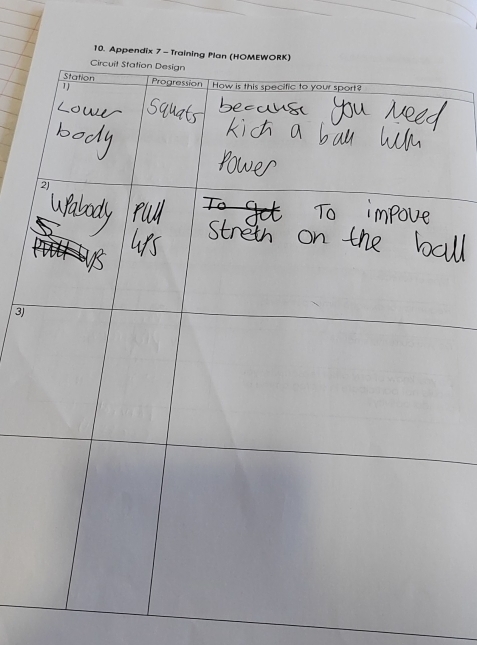 10. Appendix 7 – Training Plan (HOMEWORK)
Circuit Station Design
Station Progression How is this specific to your sport?
1)
Lower squats because you need
body kich a ball with
Power
2)
Upabody Pull To get To impove
ups Streth on the ball
ups
3)